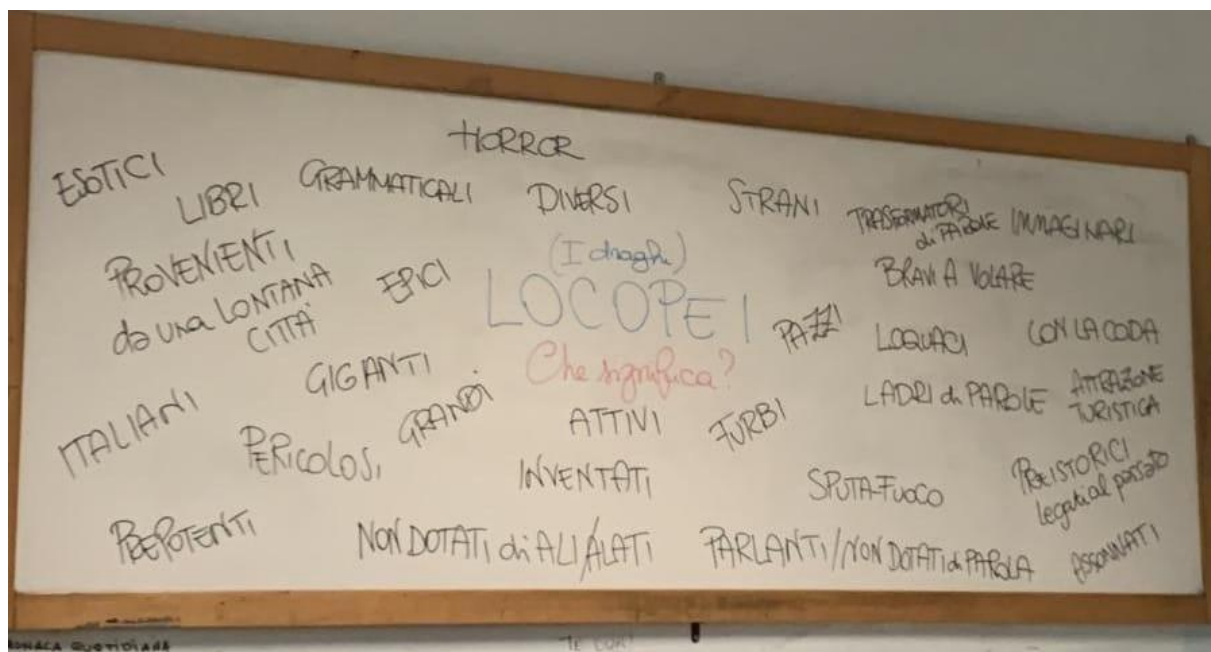 HORROR
ESOTICI
LIBRI
GRAMMATICALI
DIVERSI
STRANI
TRASFORMATORI
di PAROLE
IMMAGINARI
PROVENIENTI
da una LONTANA
CITTÀ
EPICI
(I draghi)
LOCOPEI
Che significa?
BRAVI A VOLARE
PAZZI
LOQUACI
CON LA CODA
GIGANTI
ITALIANI
PERICOLOSI
GRANDI
ATTIVI
FURBI
LADRI di PAROLE
ATTRAZIONE
TURISTICA
INVENTATI
SPUTA-FUOCO
PREISTORICI
legati al passato
PREPOTENTI
NON DOTATI di ALI/ALATI
PARLANTI/NON DOTATI di PAROLA
ASSONNATI
QUOTIDIANA